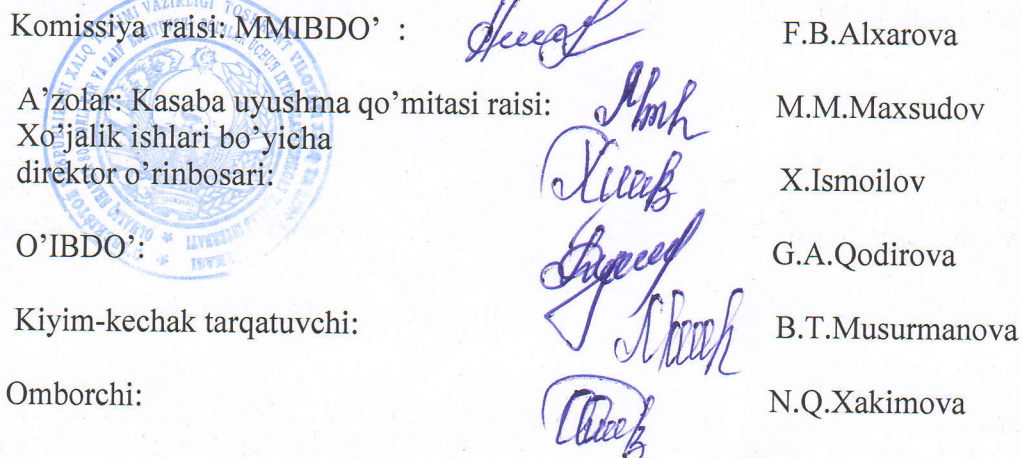 Komissiya raisi: MMIBDO’ : F.B.Alxarova
A’zolar: Kasaba uyushma qo’mitasi raisi: M.M.Maxsudov
Xo’jalik ishlari bo’yicha
direktor o’rinbosari: X.Ismoilov
O’IBDO’: G.A.Qodirova
Kiyim-kechak tarqatuvchi: B.T.Musurmanova
Omborchi: N.Q.Xakimova